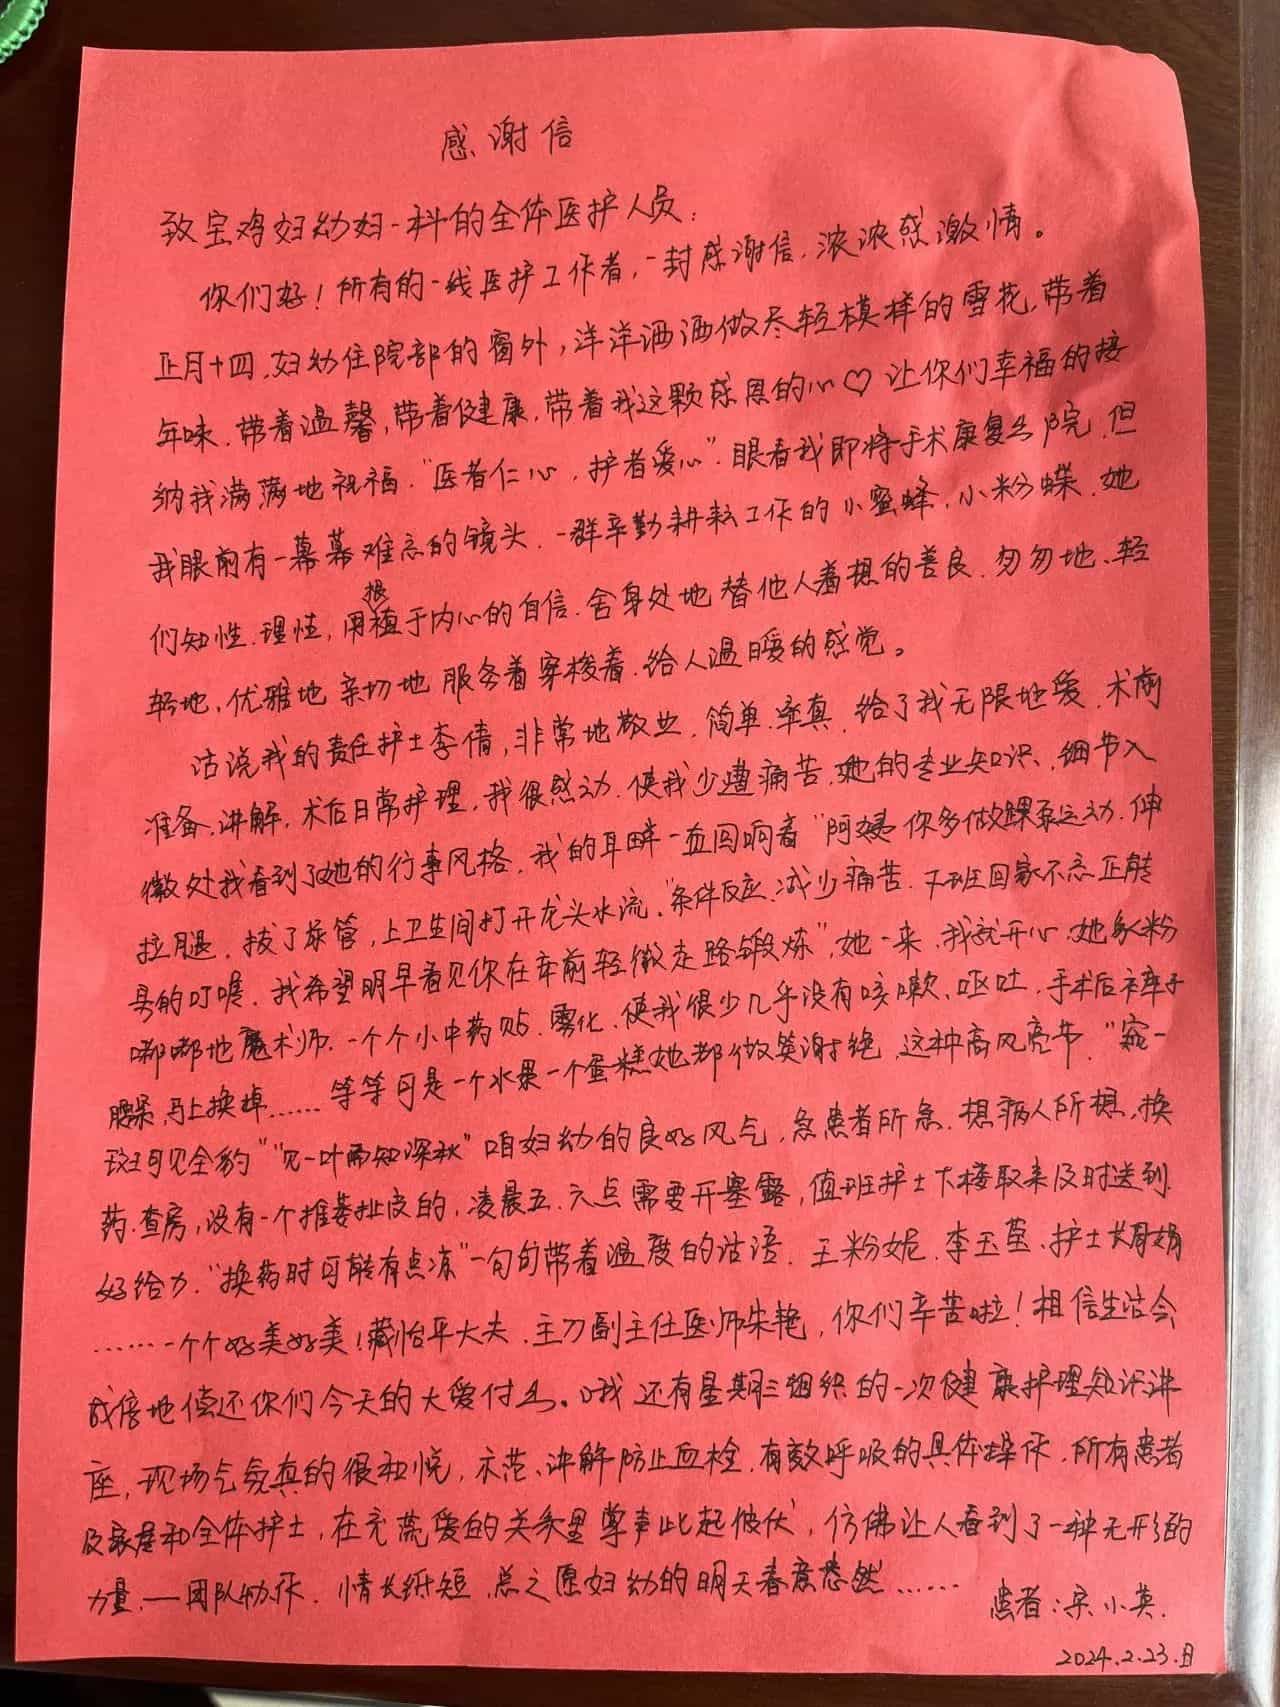 感谢信
致宝鸡妇幼妇一科的全体医护人员：
你们好！所有的一线医护工作者，一封感谢信，浓浓感激情。
正月十四，妇幼住院部的窗外，洋洋洒洒做尽轻模样的雪花，带着
年味，带着温馨，带着健康，带着我这颗感恩的心♡让你们幸福的接
纳我满满地祝福，“医者仁心，护者爱心”。眼看我即将手术康复出院，但
我眼前有一幕幕难忘的镜头，一群辛勤耕耘工作的小蜜蜂，小粉蝶，她
们知性、理性，用根植于内心的自信，舍身处地替他人着想的善良，匆匆地、轻
轻地，优雅地亲切地服务着穿梭着，给人温暖的感觉。
话说我的责任护士李倩，非常地敬业，简单、率真，给了我无限地爱，术前
准备，讲解，术后日常护理，我很感动，使我少遭痛苦，她的专业知识、细节入
微处我看到了她的行事风格，我的耳畔一直回响着“阿姨你多做踝泵运动，伸
拉腿，拔了尿管，上卫生间打开龙头水流，“条件反应，减少痛苦，下班回家不忘正能
的叮嘱，我希望明早看见你在床前轻微走路锻炼”，她一来，我就开心，她象粉
嘟嘟地魔术师，一个个小中药贴，雾化，使我很少几乎没有咳嗽、呕吐，手术后裤子
脏，马上换掉……等等可是一个水果一个蛋糕她都做笑谢绝，这种高风亮节，“窥一
斑可见全豹”“见一叶而知深秋”咱妇幼的良好风气，急患者所急，想病人所想，换
药、查房，没有一个推委扯皮的，凌晨五、六点需要开塞露，值班护士下楼取来及时送到
好给力，“换药时可能有点凉”一句句带着温度的话语，王粉妮、李玉莹、护士长娟娟
……一个个好美好美！臧怡平大夫，主刀副主任医师朱艳，你们辛苦啦！相信生活会
成倍地偿还你们今天的大爱付出。哦还有星期三组织的一次健康护理知识讲
座，现场气氛真的很和悦，示范、讲解防止血栓，有效呼吸的具体操作，所有患者
及家属和全体护士，在充满爱的关系里掌声此起彼伏，仿佛让人看到了一种无形的
力量，——团队协作，情长纸短，总之愿妇幼的明天春意盎然……
患者：宋小英.
2024.2.23.日